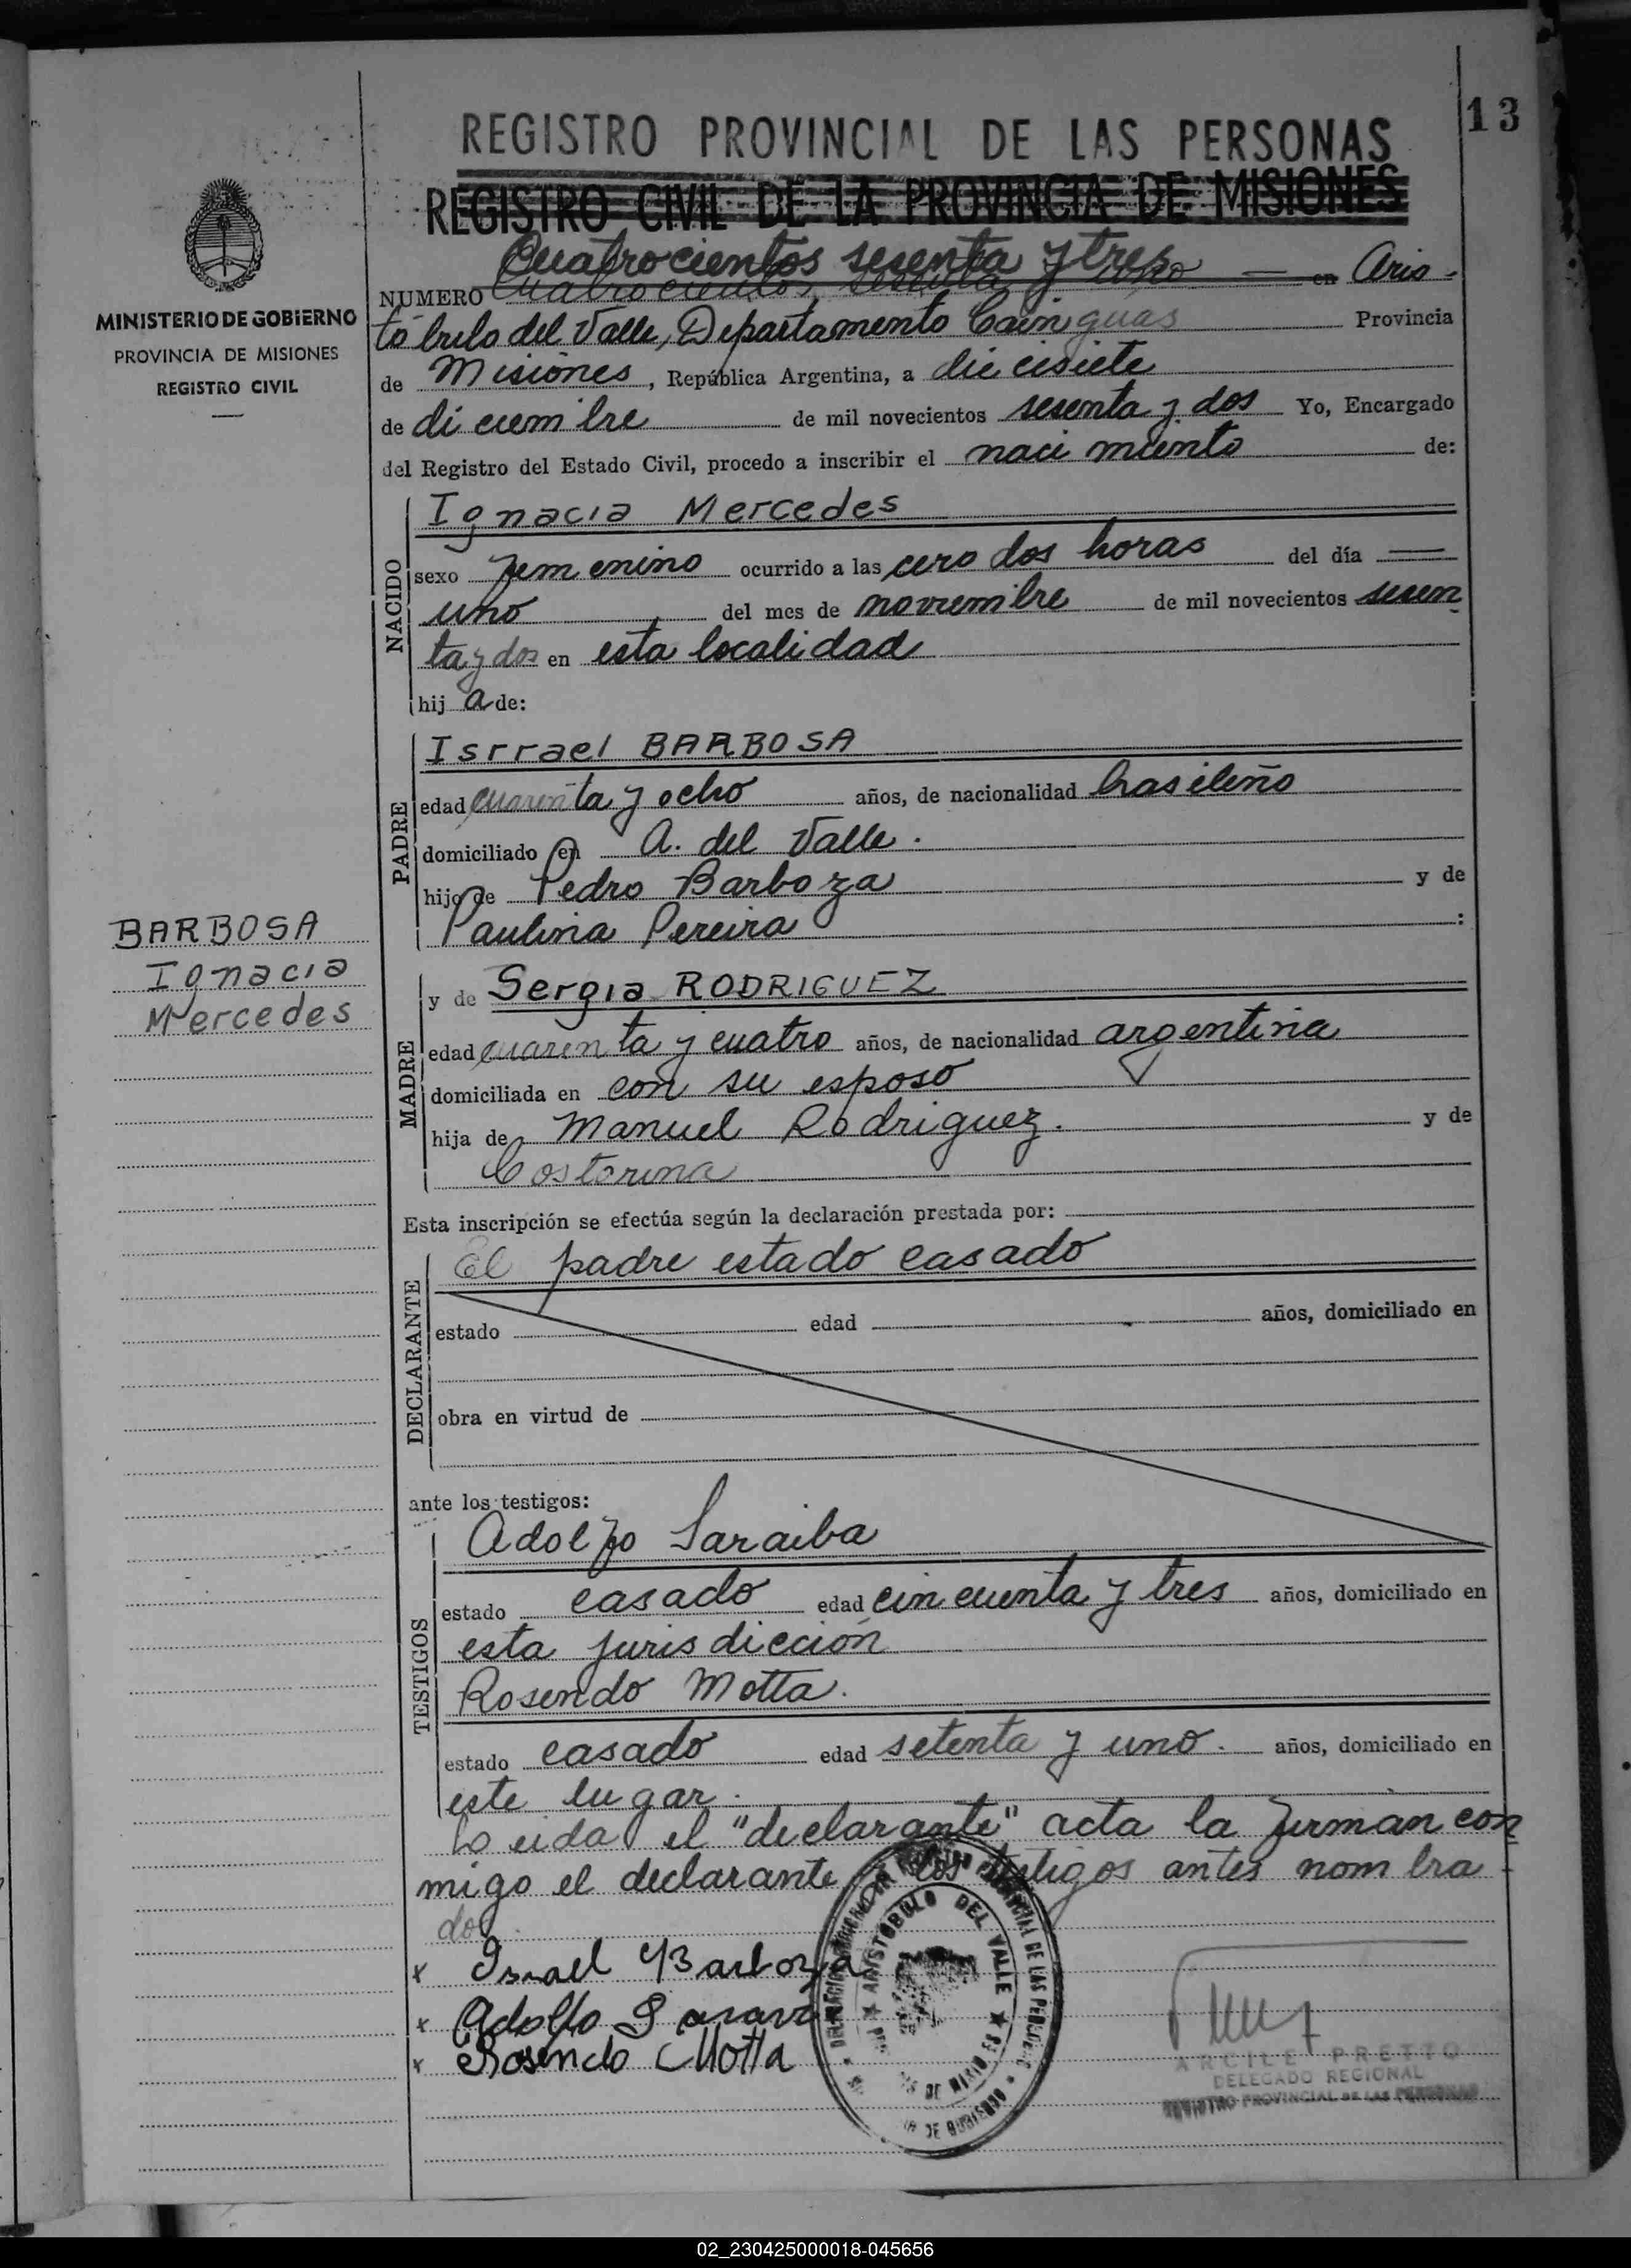 13
REGISTRO PROVINCIAL DE LAS PERSONAS
REGISTRO CIVIL DE LA PROVINCIA DE MISIONES
MINISTERIO DE GOBIERNO
PROVINCIA DE MISIONES
REGISTRO CIVIL
Cuatrocientos sesenta y tres
NUMERO Cuatrocientos, sesenta y uno en Aris-
tóbulo del Valle, Departamento Cainguás Provincia
de Misiones, República Argentina, a diecisiete
de diciembre de mil novecientos sesenta y dos Yo, Encargado
del Registro del Estado Civil, procedo a inscribir el nacimiento de:
NACIDO
Ignacia Mercedes
sexo femenino ocurrido a las cero dos horas del día
uno del mes de noviembre de mil novecientos sesen
ta y dos en esta localidad
hij a de:
PADRE
Isrrael BARBOSA
edad cuarenta y ocho años, de nacionalidad brasileño
domiciliado en A. del Valle.
hijo de Pedro Barboza y de
Paulina Pereira :
BARBOSA
Ignacia
Mercedes
MADRE
y de Sergia RODRIGUEZ
edad cuarenta y cuatro años, de nacionalidad argentina
domiciliada en con su esposo
hija de Manuel Rodriguez. y de
Costorina
Esta inscripción se efectúa según la declaración prestada por:
DECLARANTE
El padre estado casado
estado edad años, domiciliado en
obra en virtud de
ante los testigos:
TESTIGOS
Adolfo Saraiba
estado casado edad cincuenta y tres años, domiciliado en
esta jurisdicción
Rosendo Motta.
estado casado edad setenta y uno. años, domiciliado en
este lugar.
Leida el "declarante" acta la firman con
migo el declarante y los testigos antes nombra-
dos.
x Israel Barboza
x Adolfo
x Rosendo Motta
ARISTOBULO DEL VALLE
ARCILE PRETTO
DELEGADO REGIONAL
REGISTRO PROVINCIAL DE LAS PERSONAS
02_230425000018-045656